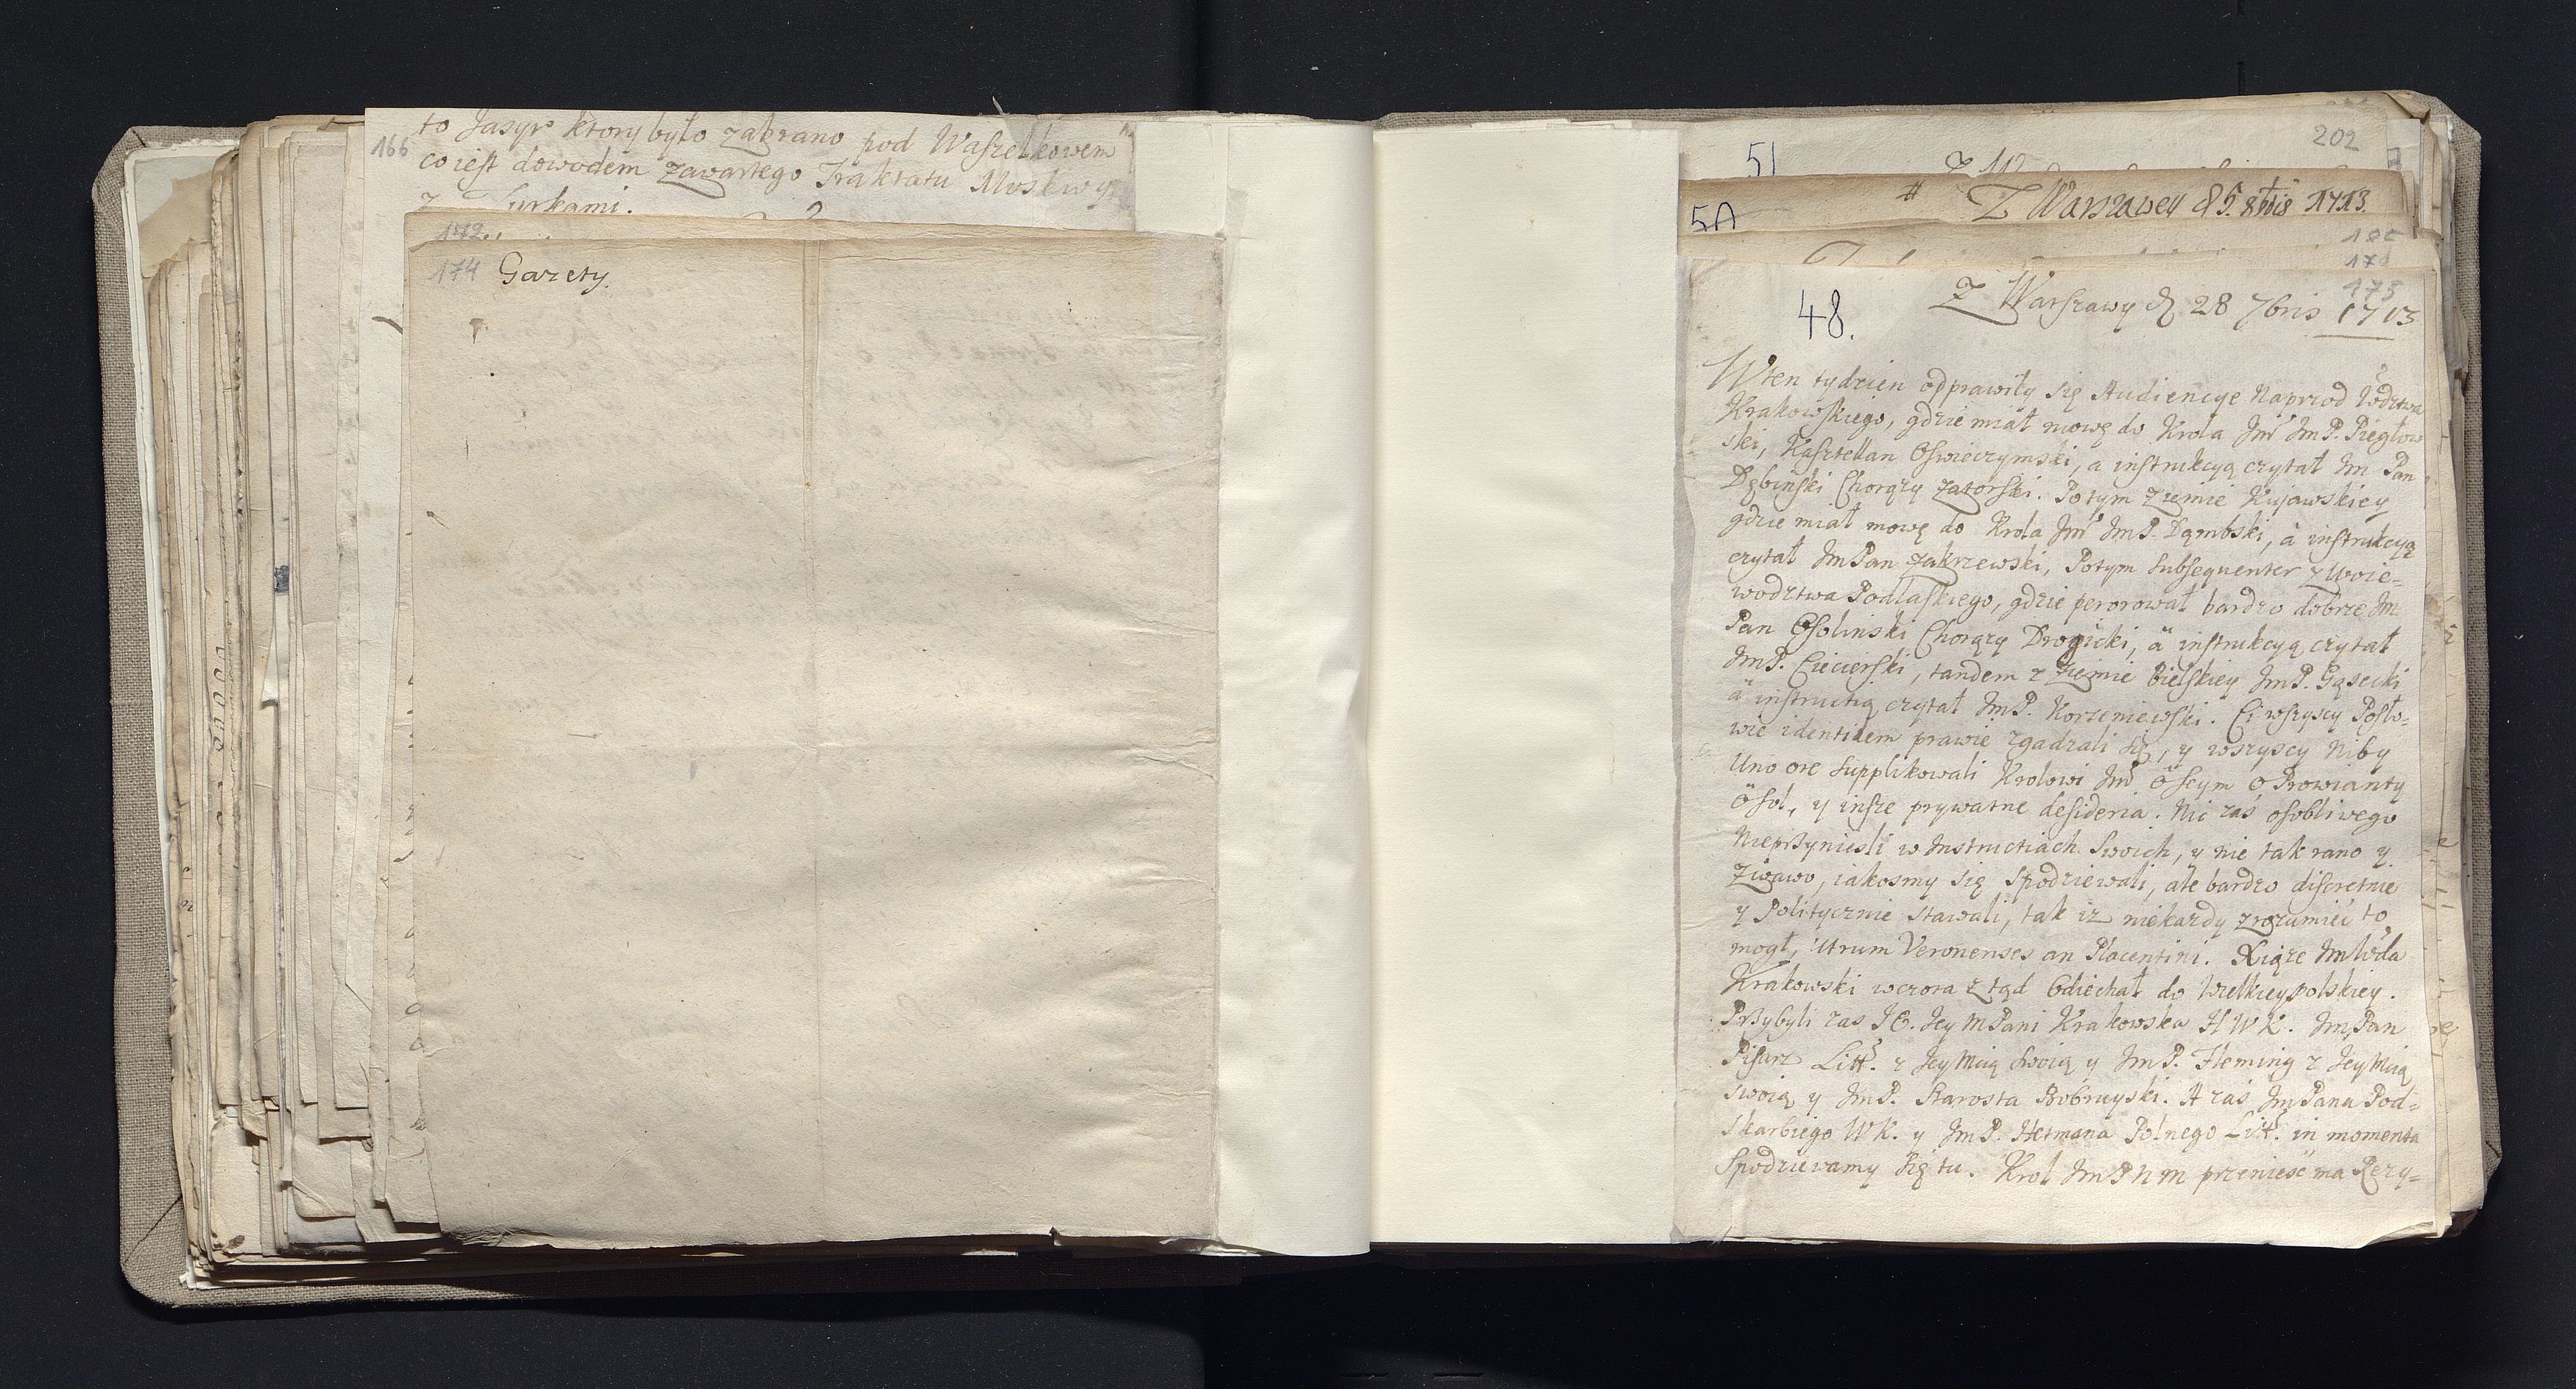 166
to Jasyr ktory było zabrano pod Waszelkowem
co iest dowodem zawartego Traktatu Moskwy
z Turkami.
172
174 Gazety.
202
51
5A
# Z Warszawey d 5. 8bris 1713.
175
48.
Z Warszawy d 28 7bris 1713
W ten tydzien odprawiły się Audiencye Naprzod Wodztwa
Krakowskiego, gdzie miał mowę do Krola Jm̃ Jm P. Piegłow
ski, Kasztellan Oswieczymski, a instrukcyą czytał Jm Pan
Dębinski Chorązy Zatorski. Potym z ziemie Kujawskiey
gdzie miał mowę do Krola Jm̃ Jm P. Dąmbski, a instrukcyą
czytał Jm Pan Zakrzewski, Potym subsequenter z Woie=
wodztwa Podlaskiego, gdzie perorował bardzo dobrze Jm
Pan Ossolinski Chorązy Drogicki, a instrukcyą czytał
Jm P. Ciecierski, tandem z Ziemie Bielskiey Jm P. Gąsecki
a instructią czytał Jm P. Korzeniewski. Ci wszyscy Posło=
wie identidem prawie zgadzali się, y wszyscy niby
Uno ore supplikowali Krolowi Jm̃ o Seym o Prowianty
o sol, y insze prywatne desideria. Nic zas osobliwego
Nieprzyniesli w Instructiach Swoich, y nie tak rano y
Zwawo, iakosmy się spodziewali, ale bardzo discretnie
y Politycznie stawali, tak iz niekazdy zrozumiec to
mogł, Utrum Veronenses an Placentini. Xiąze Jm Wda
Krakowski wczora ztąd Odiechał do Wielkieypolskiey.
Przybyli zas J O. Jey M Pani Krakowska H W K. Jm Pan
Pisarz Litt. z Jey Mcią Swoią y Jm P. Fleming z Jey Mcią
swoią y Jm P. Starosta Bobruyski. A zas Jm Pana Pod=
skarbiego W K. y Jm P. Hetmana Polnego Litt. in momenta
Spodziewamy się tu. Krol Jm P N M przeniesc ma Rezy=